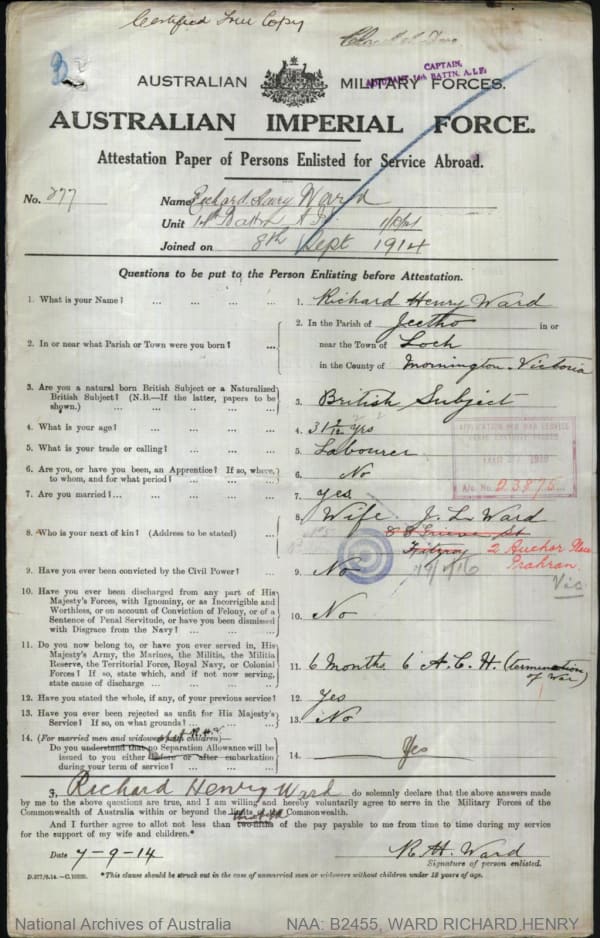 Certified True Copy
CAPTAIN,
ADJUTANT 14th BATTN. A.I.F.
AUSTRALIAN MILITARY FORCES.
AUSTRALIAN IMPERIAL FORCE.
Attestation Paper of Persons Enlisted for Service Abroad.
No. 277 Name Richard Henry Ward
Unit 14th Battn A.I.F.
Joined on 8th Sept 1914
Questions to be put to the Person Enlisting before Attestation.
1. What is your Name? ... ... ... ... 1. Richard Henry Ward
2. In or near what Parish or Town were you born? ... 2. In the Parish of Jeetho in or
near the Town of Loch
in the County of Mornington Victoria
3. Are you a natural born British Subject or a Naturalized
British Subject? (N.B.—If the latter, papers to be
shown.) ... ... ... ... ... 3. British Subject
4. What is your age? ... ... ... ... 4. 31 2/12 yrs
5. What is your trade or calling? ... ... ... 5. Labourer
6. Are you, or have you been, an Apprentice? If so, where,
to whom, and for what period? ... ... ... 6. No
7. Are you married? ... ... ... ... 7. yes
8. Who is your next of kin? (Address to be stated) ... 8. Wife J. L. Ward
St
Fitzroy 2 Anchor Place
Prahran.
Vic
9. Have you ever been convicted by the Civil Power? ... 9. No
10. Have you ever been discharged from any part of His
Majesty's Forces, with Ignominy, or as Incorrigible and
Worthless, or on account of Conviction of Felony, or of a
Sentence of Penal Servitude, or have you been dismissed
with Disgrace from the Navy? ... ... ... 10. No
11. Do you now belong to, or have you ever served in, His
Majesty's Army, the Marines, the Militia, the Militia
Reserve, the Territorial Force, Royal Navy, or Colonial
Forces? If so, state which, and if not now serving,
state cause of discharge ... ... ... 11. 6 months 6 A.C.H. (termination
of War)
12. Have you stated the whole, if any, of your previous service? 12. Yes
13. Have you ever been rejected as unfit for His Majesty's
Service? If so, on what grounds? ... ... 13. No
14. (For married men and widowers with children)—
Do you understand that no Separation Allowance will be
issued to you either before or after embarkation
during your term of service? ... ... ... 14. Yes
I, Richard Henry Ward do solemnly declare that the above answers made
by me to the above questions are true, and I am willing and hereby voluntarily agree to serve in the Military Forces of the
Commonwealth of Australia within or beyond the limits of the Commonwealth.
And I further agree to allot not less than two-fifths of the pay payable to me from time to time during my service
for the support of my wife and children.*
Date 7-9-14 R H Ward
Signature of person enlisted.
*This clause should be struck out in the case of unmarried men or widowers without children under 18 years of age.
National Archives of Australia NAA: B2455, WARD RICHARD HENRY